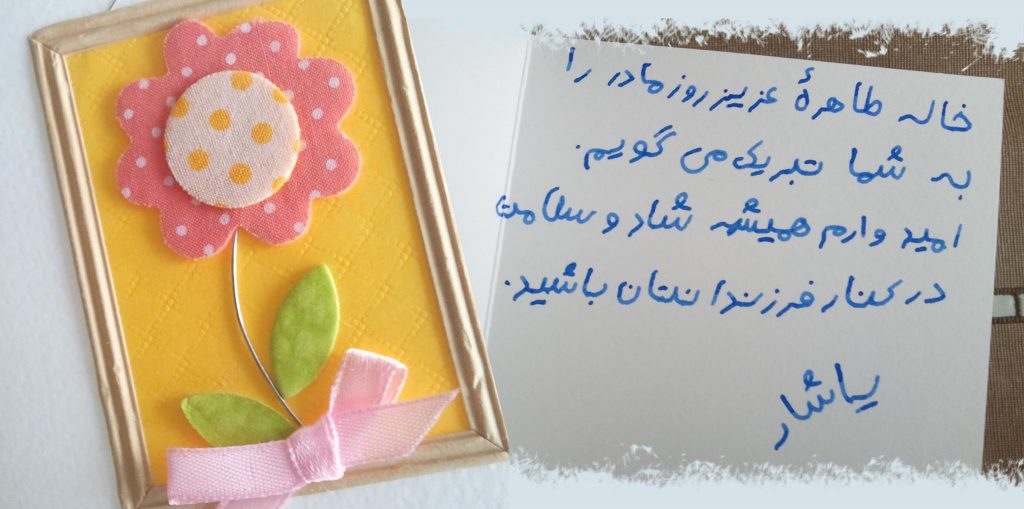 خاله طاهرهٔ عزیز روز مادر را
به شما تبریک می گویم.
امیدوارم همیشه شاد و سلامت
در کنار فرزندانتان باشید.
یاشار